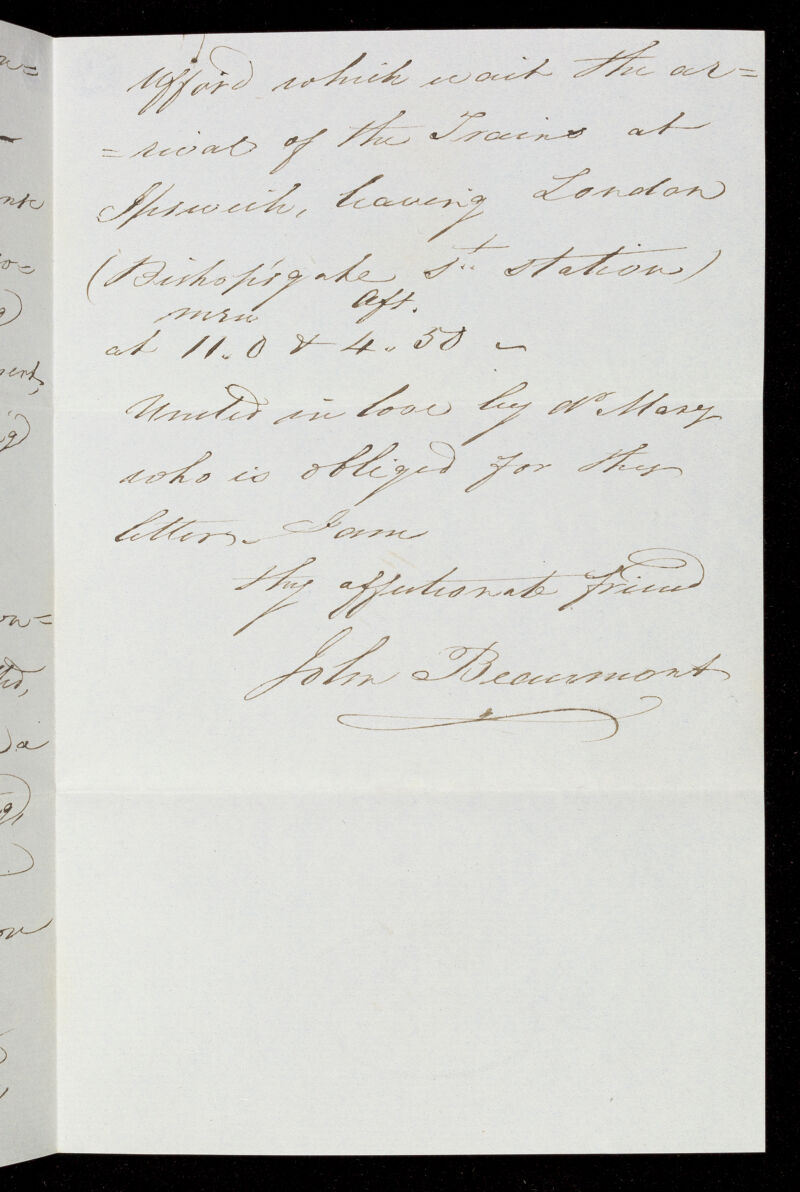 Ufford which wait the ar=
=rival of the Trains at
Ipswich, leaving London
(Bishopsgate St. station)
mrn aft.
at 11.0 & 4.50 -
United in love by dr Mary
who is obliged for thy
letter. I am
thy affectionate friend
John Beaumont